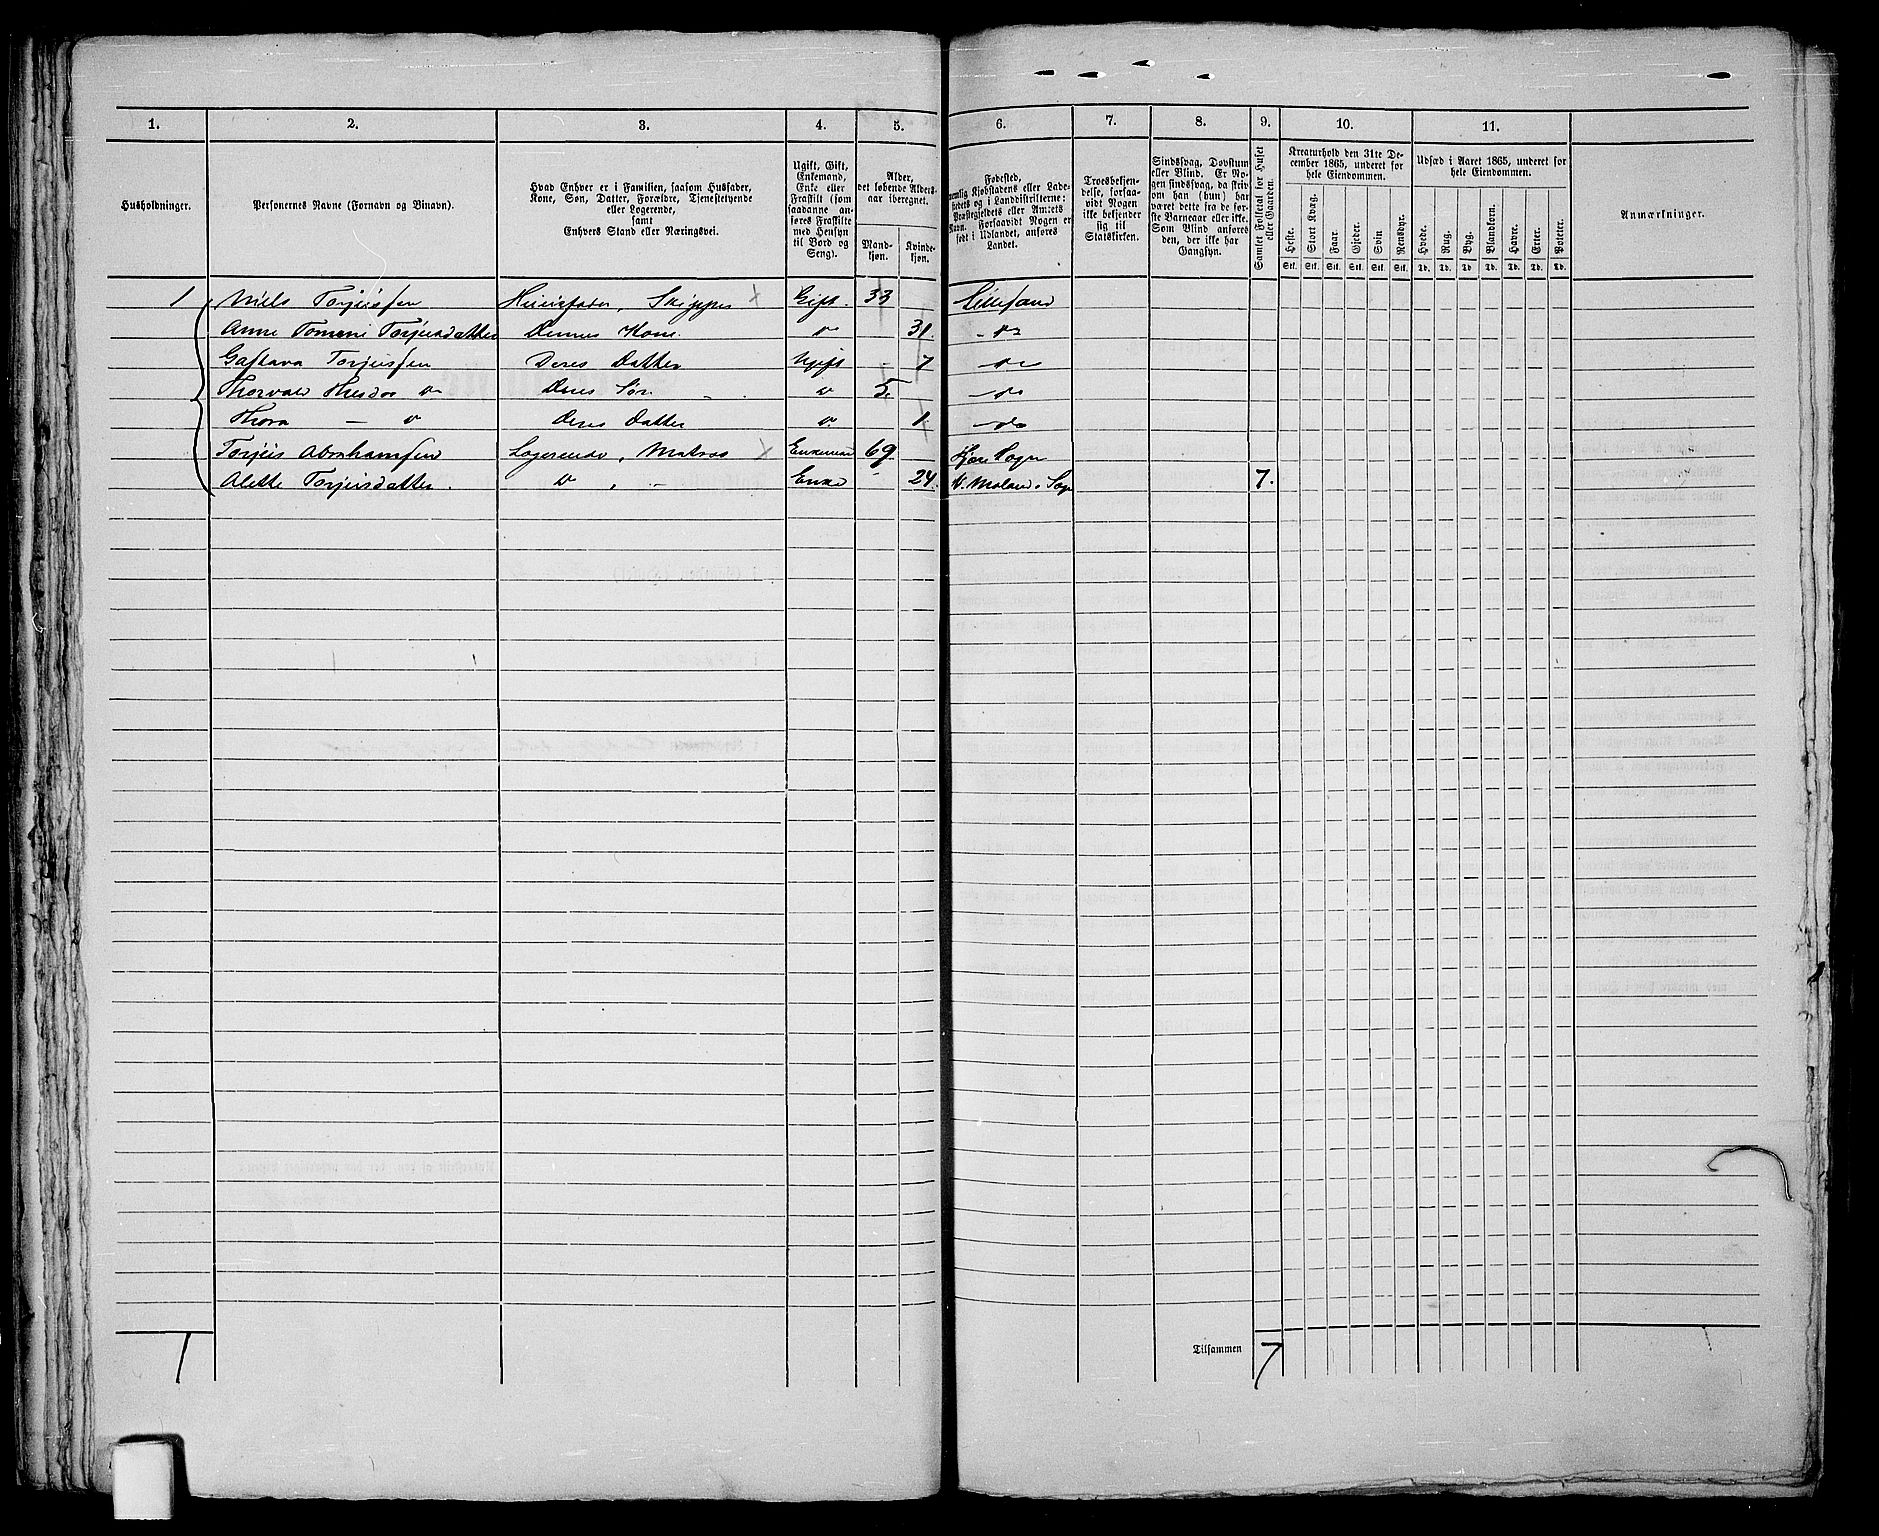 1. 2. 3. 4. 5. 6. 7. 8. 9. 10. 11.
Husholdninger.
Personernes Navne (Fornavn og Binavn).
Hvad Enhver er i Familien, saasom Husfader,
Kone, Søn, Datter, Forældre, Tjenestetyende
eller Logerende,
samt
Enhvers Stand eller Næringsvei.
Ugift, Gift,
Enkemand,
Enke eller
Fraskilt (som
saadanne an-
føres Fraskilte
med Hensyn
til Bord og
Seng).
Alder,
det løbende Alders-
aar iberegnet.
Mand-
kjøn.
Kvinde-
kjøn.
Fødested,
nemlig Kjøbstadens eller Lade-
stedets og i Landdistrikterne:
Præstegjeldets eller Amtets
Navn. Forsaavidt Nogen er
født i Udlandet, anføres
Landet.
Troesbekjen-
delse, forsaa-
vidt Nogen
ikke bekjender
sig til
Statskirken.
Sindssvag, Døvstum
eller Blind. Er No-
gen sindssvag, da skriv
om han (hun) har
været dette fra de før-
ste Barneaar eller ikke.
Som Blind anføres
den, der ikke har
Gangsyn.
Samlet Folketal for Huset
eller Gaarden.
Kreaturhold den 31te De-
cember 1865, underet for
hele Eiendommen.
Heste. Stort Kvæg. Faar. Gjeder. Svin Rensdyr.
Stk. Stk. Stk. Stk. Stk. Stk.
Udsæd i Aaret 1865, underet for
hele Eiendommen.
Hvede. Rug. Byg. Blandkorn. Havre. Erter. Poteter.
Td. Td. Td Td. Td. Td. Td.
Anmærkninger.
1 Niels Torjeissen Huusfader, Skipper Gift. 33 Lillesand
Anne Tomine Torjeisdatter Dennes Kone. do 31. - do
Gustava Torjeissen Deres Datter Ugift - 7 - do
Thorvald do Deres Søn do 5. - do
Thora - do Deres Datter do. 1. - do
Torjeis Abrahamsen Logerende, Matros Enkemand 69. Sogn
Alette Torjeisdatter. do, - Enke - 24. V. Moland Sogn 7.
1 Tilsammen 7